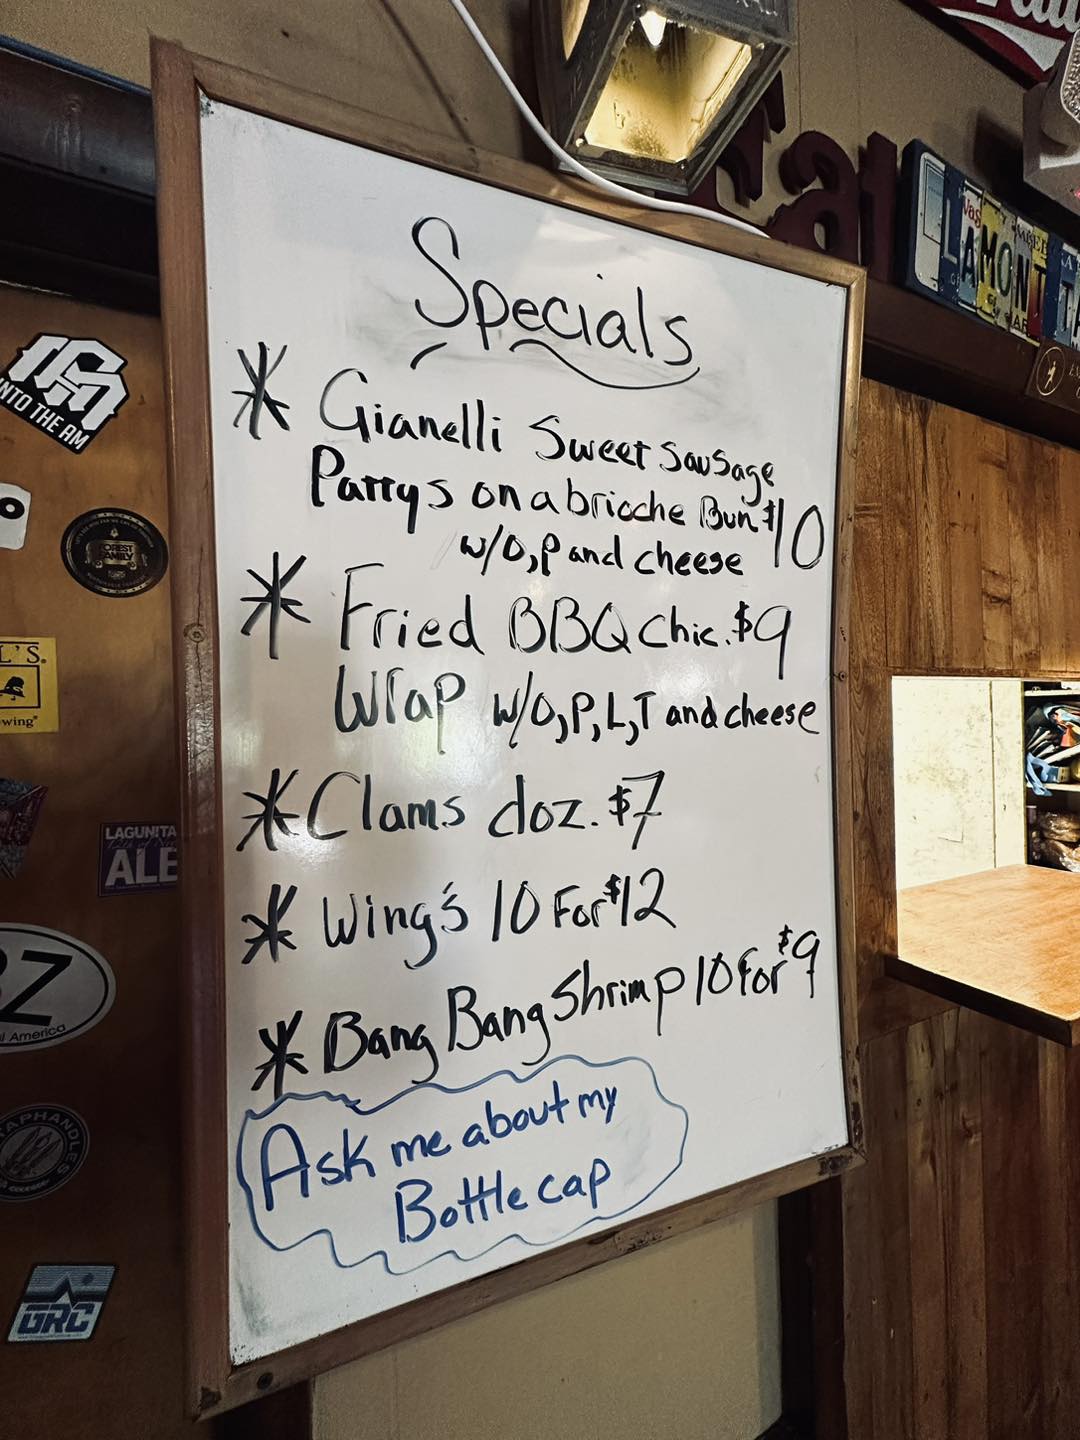 Specials
* Gianelli Sweet Sausage
Pattys on a brioche Bun $10
w/O,P and cheese
* Fried BBQ Chic. $9
Wrap w/O,P,L,T and cheese
* Clams doz. $7
* Wing's 10 For $12
* Bang Bang Shrimp 10 for $9
Ask me about my
Bottle cap
INTO THE AM
FOREST
FAMILY
L'S.
wing
LAGUNITA
ALE
BZ
l America
TAPHANDLES
GRC
Eat
LAMONT